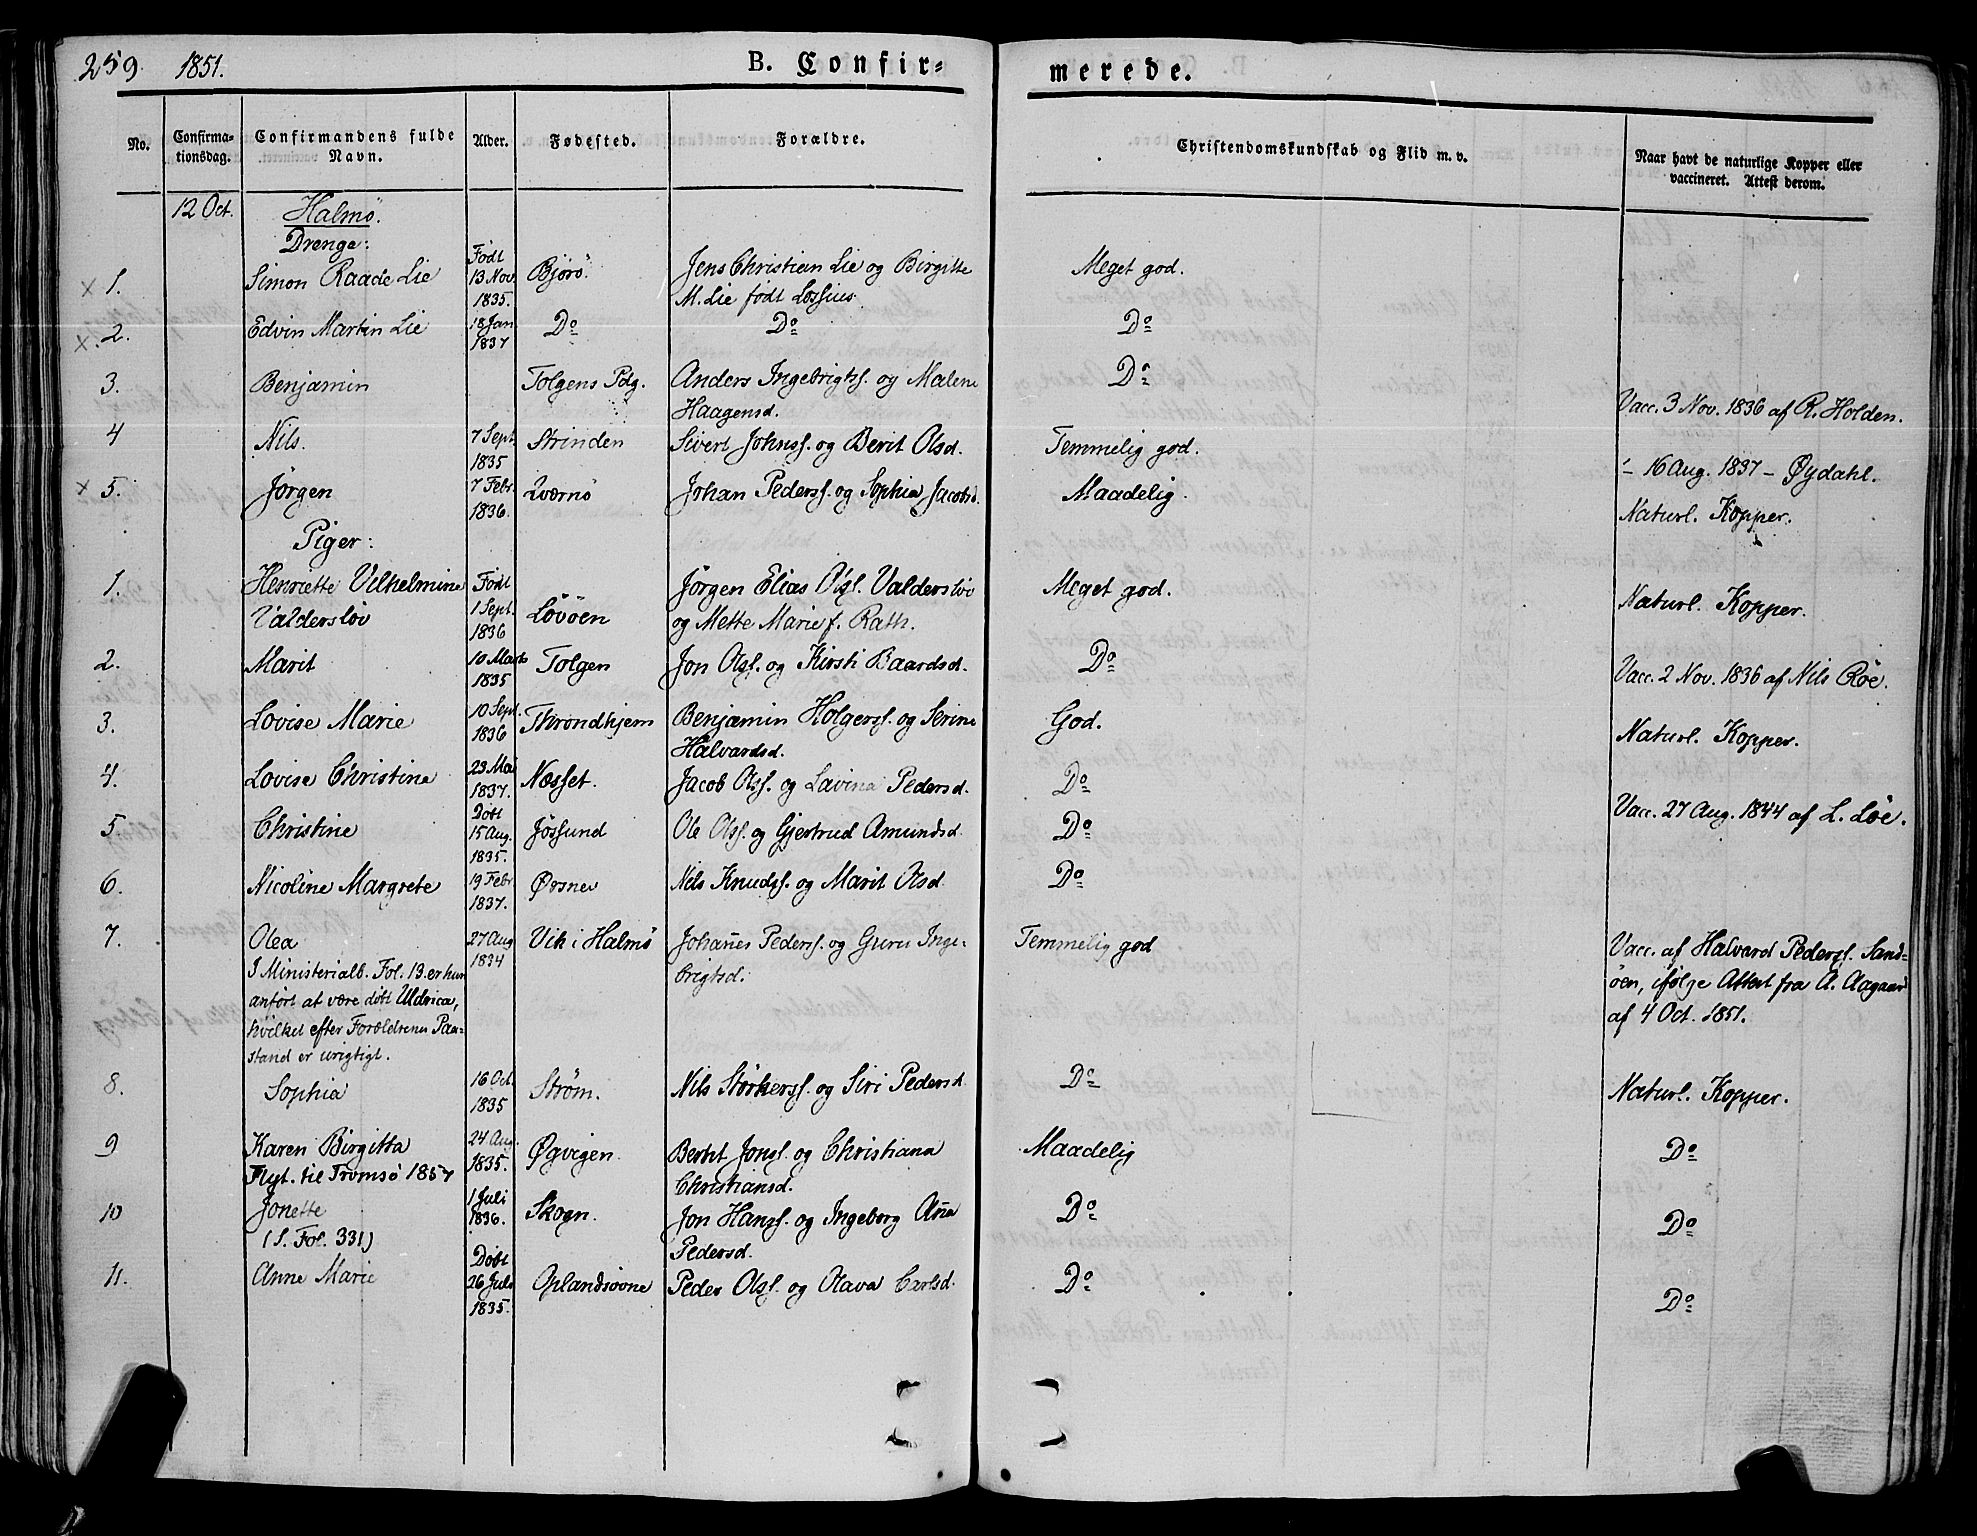 259. 1851. B. Confir= merede.
No. Confirma-tionsdag. Confirmandens fulde Navn. Alder. Fødested. Forældre. Christendomskundskab og Flid m. v. Naar havt de naturlige Kopper eller vaccineret. Attest derom.
12 Oct. Halmø.
Drenge:
x 1. Simon Raade Lie Født 13 Nov. 1835. Bjørø Jens Christian Lie og Birgitte Meget god.
M. Lie født Lossius.
x. 2. Edvin Martin Lie 18 Jan 1837 Do Do Do
3. Benjamin Tolgens Pdg. Anders Ingebrigts. og Malene Do
Haagensd. Vacc. 3 Nov. 1836 af R. Holden.
4 Nils. 7 Sept. 1835 Strinden Sivert Johns. og Berit Olsd. Temmelig god. – 16 Aug. 1837 – Øydahl.
x 5. Jörgen 7 Febr. 1836. Johan Peders. og Sophia Jacobsd. Maadelig. Naturl. Kopper.
Piger:
1. Henriette Vilhelmine Født Jörgen Elias Ols. Valdersløv Meget god. Naturl. Kopper.
Valdersløv 1 Sept. 1836 Løvöen og Mette Marie f. Rath.
2. Marit 10 Marts 1835 Tolgen Jon Ols. og Kirsti Baardsd. Do Vacc. 2 Nov. 1836 af Nils Röe.
3. Lovise Marie 10 Sept. 1836 Throndhjem Benjamin Holgers. og Serine God. Naturl. Kopper.
Halvardsd.
4. Lovise Christine 23 Mai 1837. Næsset. Jacob Ols. og Lavina Pedersd. Do
5. Christine Døbt 15 Aug. 1835. Jössund Ole Ols. og Gjertrud Amundsd. Do Vacc. 27 Aug. 1844 af L. Löe.
6. Nicoline Margrete 19 Febr. 1837. Nils Knuds. og Marit Olsd. Do
7. Olea 27 Aug 1834 Vik i Halmø Johañes Peders. og Guru Inge- Temmelig god Vacc. af Halvard Peders. Sand=
I Ministerialb. Fol. 13. er hun brigtsd. öen, ifølge Attest fra A. Aagaard
anført at være døbt Uldrica, af 4 Oct. 1851.
hvilket efter Forældrenes Paa-
stand er urigtigt.
8. Sophia 16 Oct. 1835 Strøm. Nils Störkers. og Siri Pedersd. Do Naturl. Kopper.
9 Karen Birgitta 24 Aug. 1835. Øgvigen Bernt Jons. og Christiana Maadelig Do
Flyt. til Tromsø 1857 Christiansd.
10 Jonette 1 Juli 1836. Skogn. Jon Hans. og Ingeborg Aña Do Do
(S. Fol. 331) Pedersd.
11. Anne Marie Døbt 26 Juli 1835. Oplandsøvne Peder Ols. og Olava Carlsd. Do Do